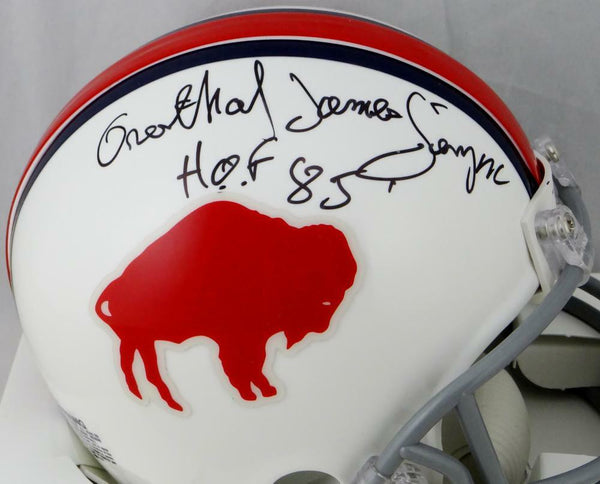 Orenthal James Simpson
H.O.F 85